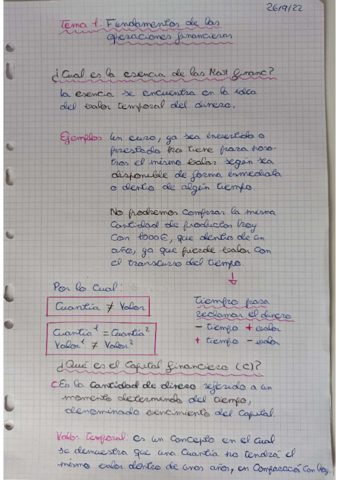 26/9/22
Tema 1. Fundamentos de las
operaciones financieras
¿Cual es la esencia de las Mat Financ?
La esencia se encuentra en la idea
del valor temporal del dinero.
Ejemplos Un euro, ya sea invertido o
prestado no tiene para noso-
tros el mismo valor según sea
disponible de forma inmediata
o dentro de algún tiempo.
No podremos comprar la misma
cantidad de productos hoy
con 1000€, que dentro de un
año, ya que pierde valor con
el transcurso del tiempo
Por lo cual:
Cuantía ≠ Valor
Cuantía¹ = Cuantía²
Valor¹ ≠ Valor²
tiempo para
reclamar el dinero
- tiempo + valor
+ tiempo - valor
¿Qué es el Capital financiero (C)?
Es la cantidad de dinero referido a un
momento determinado del tiempo,
denominado vencimiento del capital.
Valor temporal es un concepto en el cual
se demuestra que una cuantía no tendrá el
mismo valor dentro de unos años, en comparación con hoy.